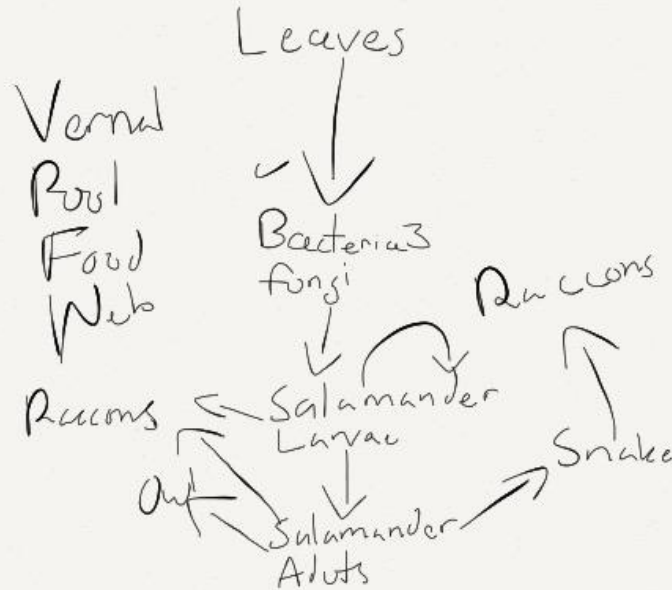 Leaves
Vernal
Pool
Food
Web
Bacteria3
fungi
Raccons
Raccons
Salamander
Larvae
Snake
Salamander
Aduts